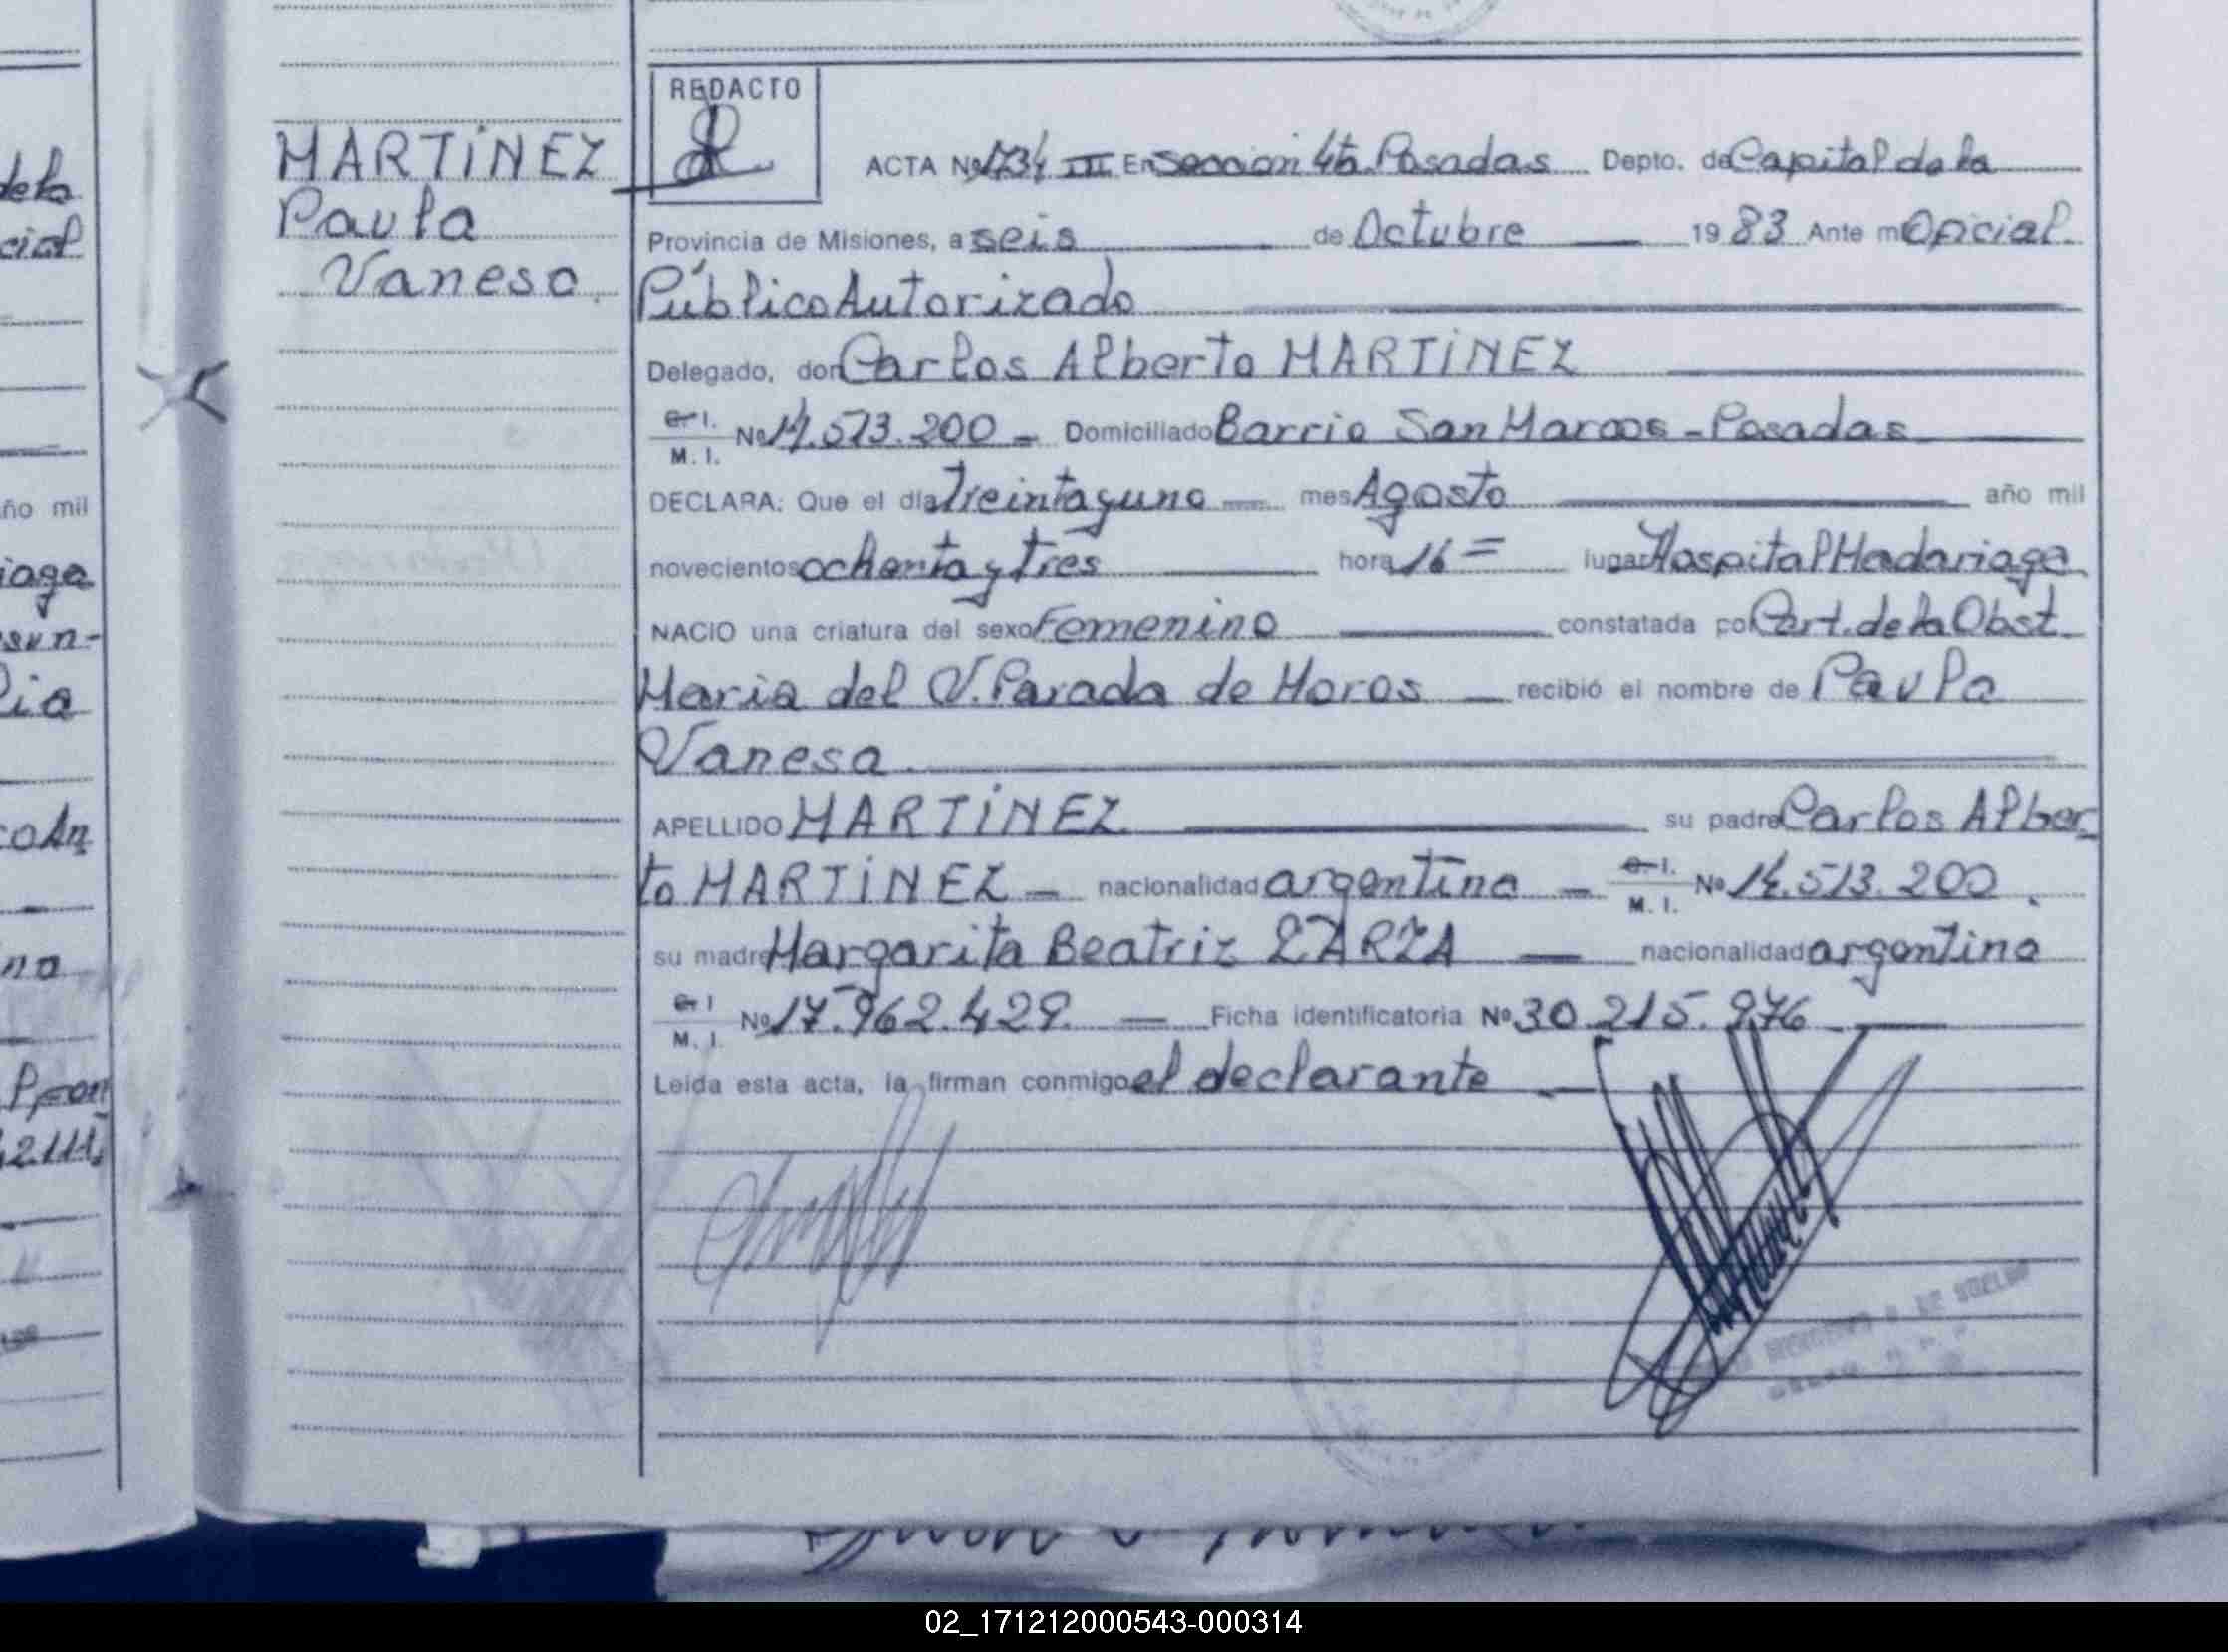 MARTÍNEZ
Paula
Vanesa.
REDACTO
ACTA Nº 1734 III En Sección 4ta. Posadas Depto. de Capital de la
Provincia de Misiones, a seis de Octubre 1983 Ante mi Oficial
Público Autorizado
Delegado, don Carlos Alberto MARTÍNEZ
C. I.
M. I.
Nº 14.513.200 - Domiciliado Barrio San Marcos - Posadas
DECLARA: Que el día Treinta y uno mes Agosto año mil
novecientos ochenta y tres hora 16 = lugar Hospital Madariaga
NACIO una criatura del sexo Femenino constatada por Cert. de la Obst.
Maria del V. Parada de Moros recibió el nombre de Paula
Vanesa.
APELLIDO MARTÍNEZ su padre Carlos Alber
to MARTÍNEZ - nacionalidad argentina - C. I.
M. I.
Nº 14.513.200.
su madre Margarita Beatriz ZARZA - nacionalidad argentina
C. I
M. I.
Nº 17.962.429. - Ficha identificatoria Nº 30.215.976
Leída esta acta, la firman conmigo el declarante
ño mil
02_171212000543-000314